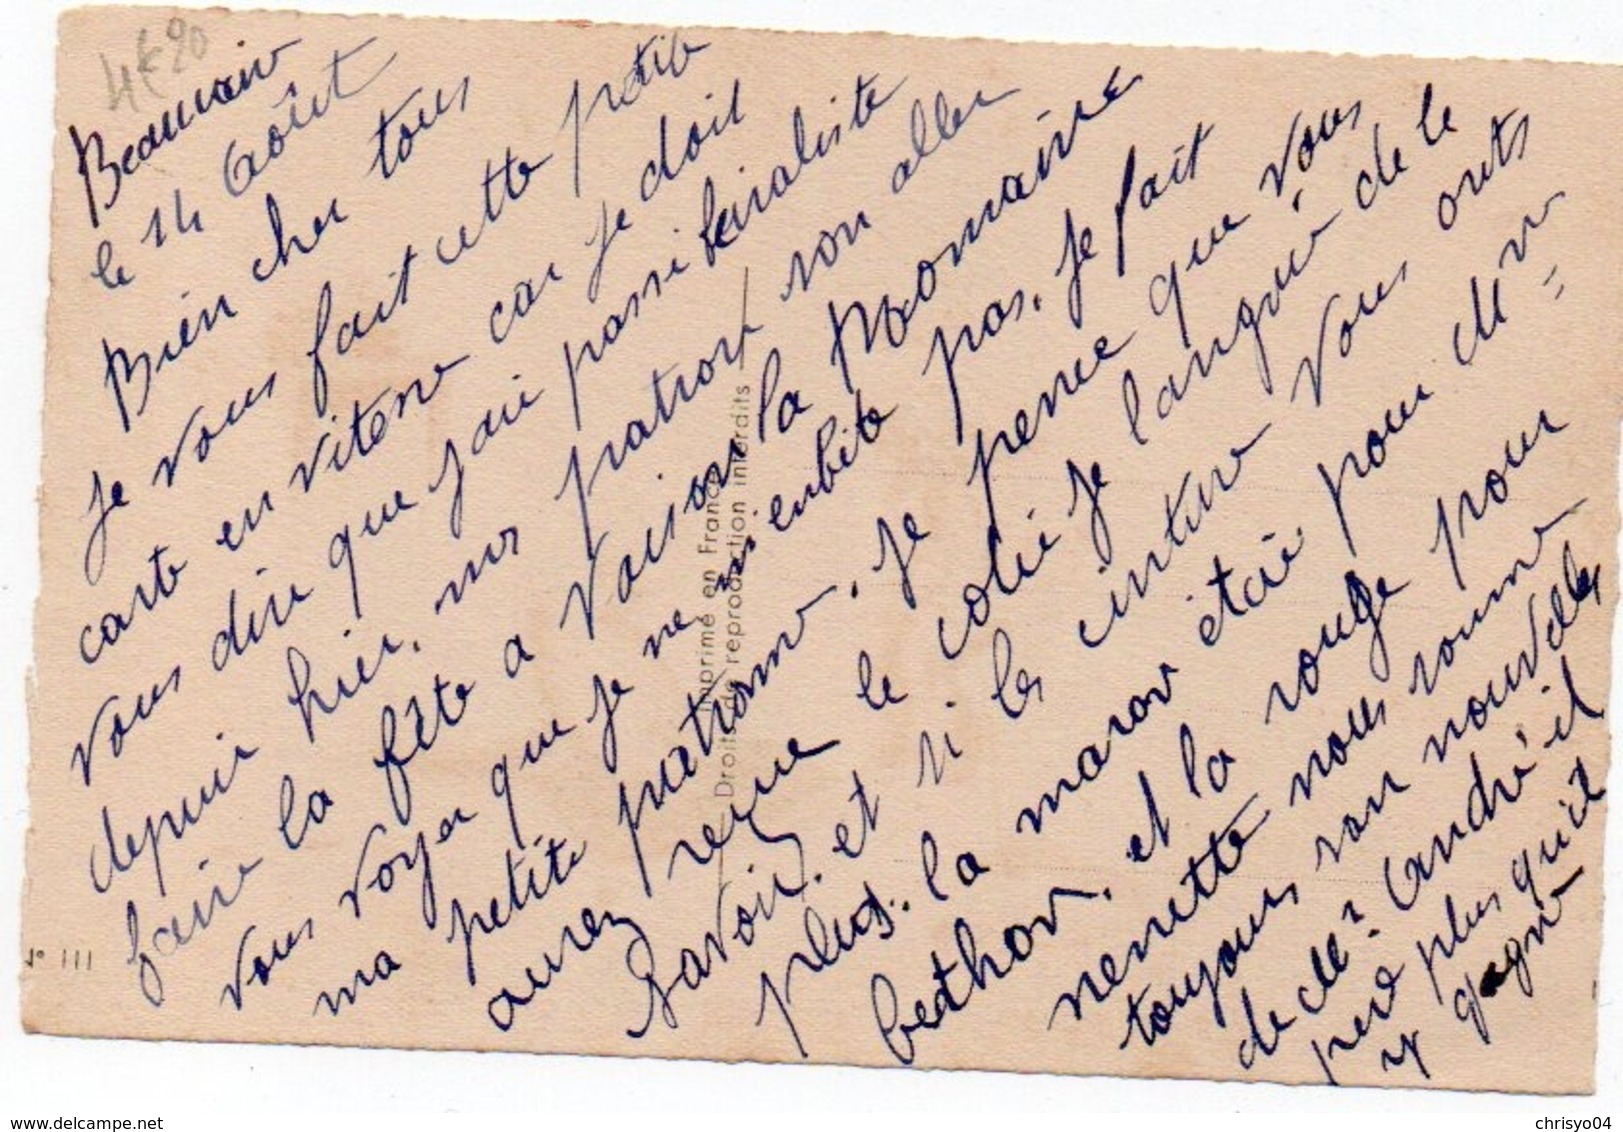 4€20
Beauvoir
le 14 Août
Bien cher tous
Je vous fait cette petite
carte en vitesse car je doit
vous dire que j'ai passi
depuis hier. nos patron son aller
faire la fête a Vaison la Romaine
vous voyer que je ne m'enbite pas. Je fait
ma petite patronne. Je pense que vous
aurez reçue le colié je languie de le
savoir. et si les vous
plus. la maron étai pour
berthon. et la rouge pour
nenette nous somme
toujours san nouvelles
de dé? André il
perd plus qu'il
y gagne
Imprimé en France
Droits de reproduction interdits
N° 111
chrisyo04